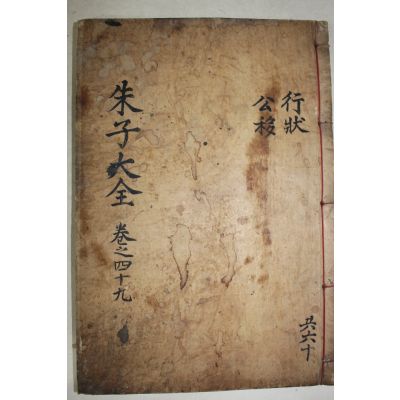 朱子大全 卷之四十九
行狀
公移
共六十